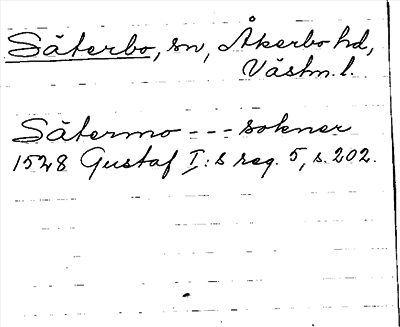 Säterbo, sn, Åkerbo hd,
Västm. l.
Sätermo - - - sokner
1528 Gustaf I:s reg. 5, s. 202.